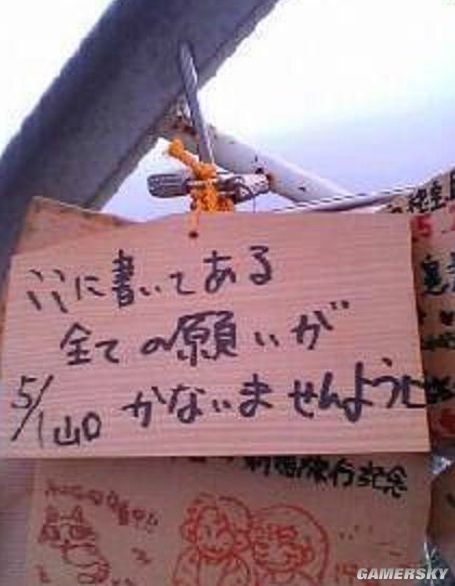 ここに書いてある
全ての願いが
かないませんように
5/1 山口
新婚旅行記念
GAMERSKY